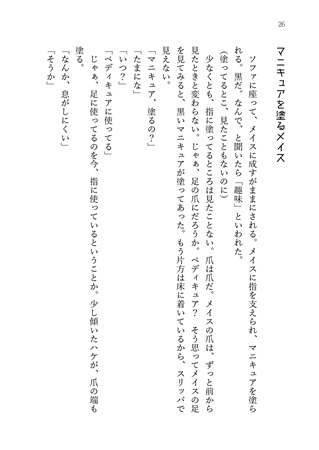 26
マニキュアを塗るメイス
ソファに座って、メイスに成すがままにされる。メイスに指を支えられ、マニキュアを塗ら
れる。黒だ。なんで、と聞いたら「趣味」といわれた。
(塗ってるとこ、見たこともないのに)
少なくとも、指に塗ってるところは見たことない。爪は爪だ。メイスの爪は、ずっと前から
見たときと変わらない。じゃあ、足の爪にだろうか。ペディキュア? そう思ってメイスの足
を見てみると、黒いマニキュアが塗ってあった。もう片方は床に着いているから、スリッパで
見えない。
「マニキュア、塗るの?」
「たまにな」
「いつ?」
「ペディキュアに使ってる」
じゃあ、足に使ってるのを今、指に使っているということか。少し傾いたハケが、爪の端も
塗る。
「なんか、息がしにくい」
「そうか」